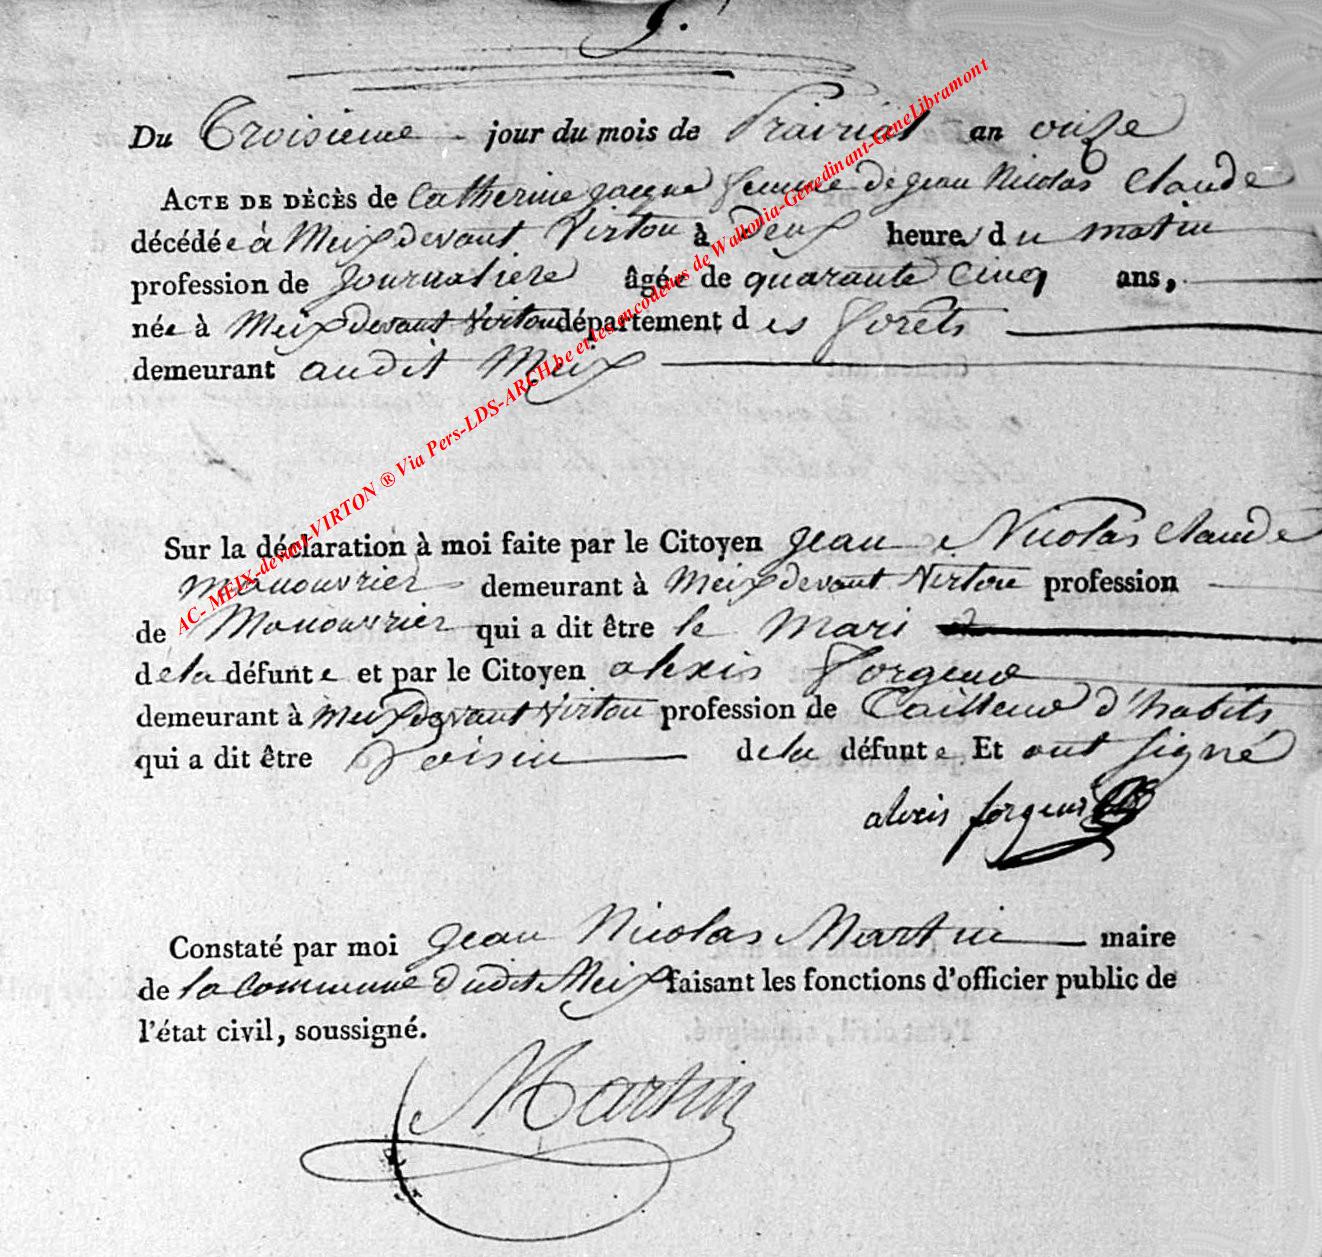 9.
Du Troisieme jour du mois de Prairial an onze
ACTE DE DÉCÈS de Catherine Jacque femme de jean Nicolas Claude
décédée à Meix devant Virton à Deux heures du matin
profession de Journaliere âgée de quarante Cinq ans,
née à Meix devant Virton département des forêts
demeurant audit Meix
Sur la déclaration à moi faite par le Citoyen jean Nicolas Claude
Manouvrier demeurant à Meix devant Virton profession
de Manouvrier qui a dit être le Mari
dela défunte et par le Citoyen alexis forgeur
demeurant à Meix devant Virton profession de Tailleur d'habits
qui a dit être Voisin dela défunte Et ont signé
alexis forgeur
Constaté par moi jean Nicolas Martin maire
de la commune dudit Meix faisant les fonctions d'officier public de
l'état civil, soussigné.
Martin
AC- MEIX-devant-VIRTON ® Via Pers-LDS-ARCH.be et les encodeurs de Wallonia-Genedinant-GeneLibramont